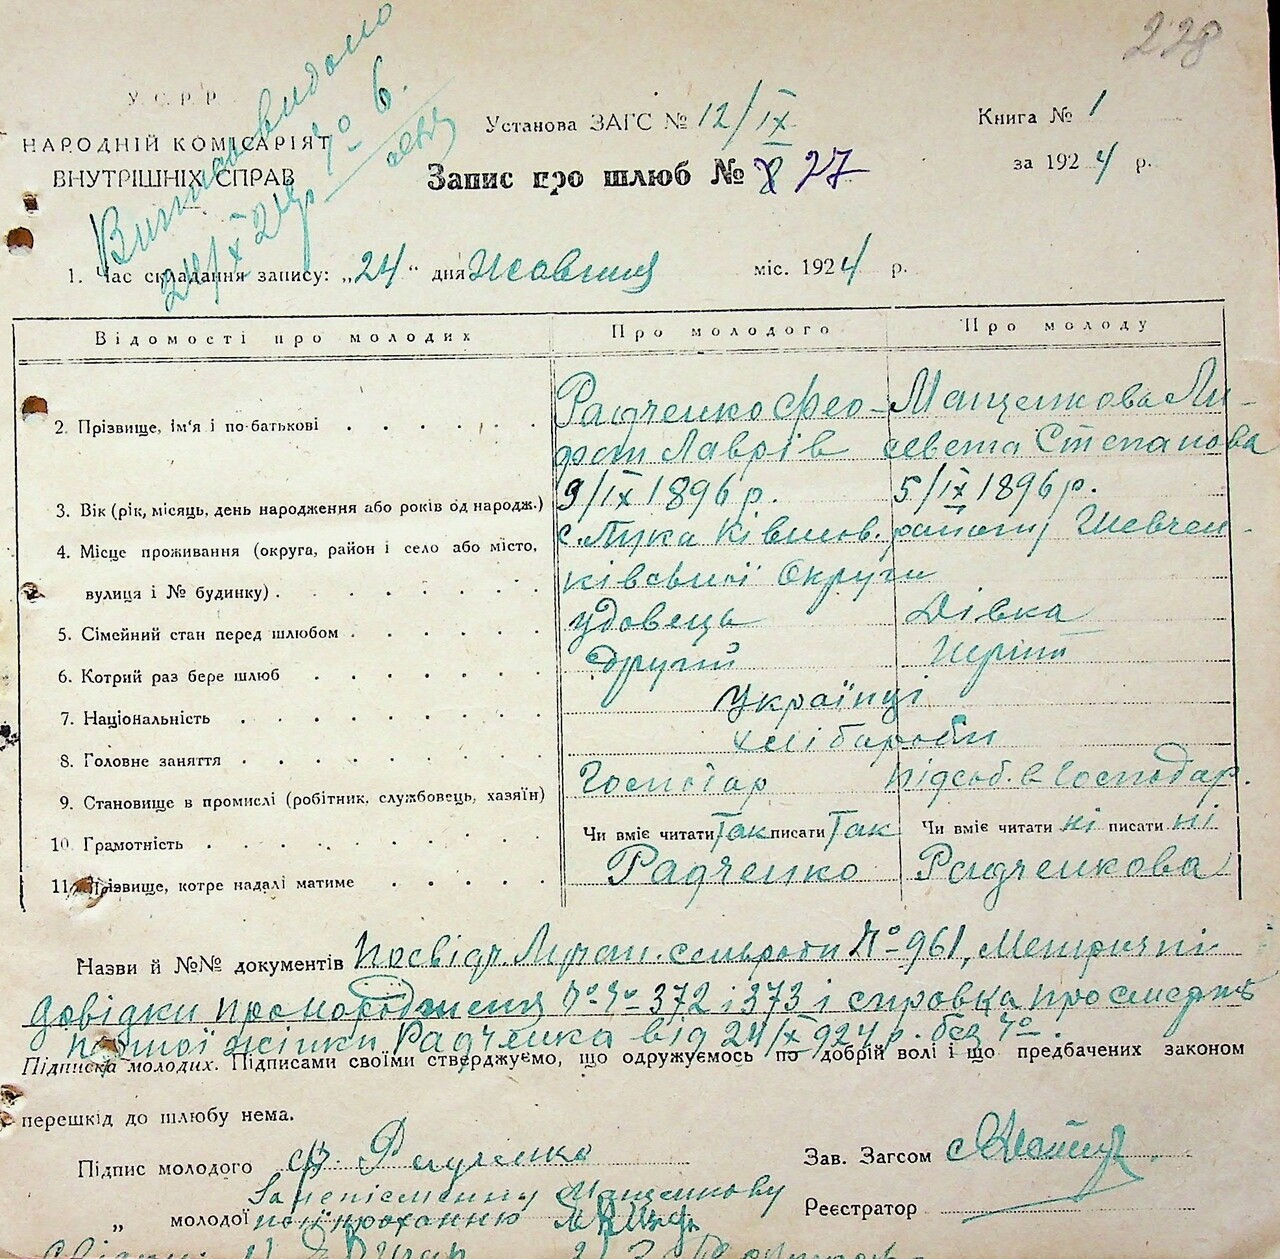 228
Витяг видано
24/X 24р. № 6.
У. С. Р. Р.
НАРОДНІЙ КОМІСАРІЯТ
ВНУТРІШНІХ СПРАВ
Установа ЗАГС № 12/IX
Книга № 1
Запис про шлюб № 8 27
за 1924 р.
1. Час складання запису: „24“ дня Жовтня міс. 1924 р.
Відомості про молодих Про молодого Про молоду
2. Прізвище, ім'я і по-батькові Радченко Фео- Мащенкова Ли-
дот Лаврів севета Степанова
3. Вік (рік, місяць, день народження або років од народж.) 9/IX 1896 р. 5/IX 1896 р.
4. Місце проживання (округа, район і село або місто, с. Лука Ківшов. району Шевчен-
вулиця і № будинку) ківської Округи
5. Сімейний стан перед шлюбом удовець Дівка
6. Котрий раз бере шлюб другий перший
7. Національність Українці
8. Головне заняття хлібароби
9. Становище в промислі (робітник, службовець, хазяїн) Господар підсоб. в господар.
10. Грамотність Чи вміє читати Так писати Так Чи вміє читати ні писати ні
11. Прізвище, котре надалі матиме Радченко Радченкова
Назви й №№ документів Посвідч. Лучан. сельради № 961, Метричні
довідки про народження №№ 372 і 373 і справка про смерть
першої жінки Радченка від 24/X 924 р. без №.
Підписка молодих. Підписами своїми стверджуємо, що одружуємось по добрій волі і що предбачених законом
перешкід до шлюбу нема.
Підпис молодого Ф. Радченко
Зав. Загсом
За неписьменну Мащенкову
„ молодої по її проханню
Реєстратор